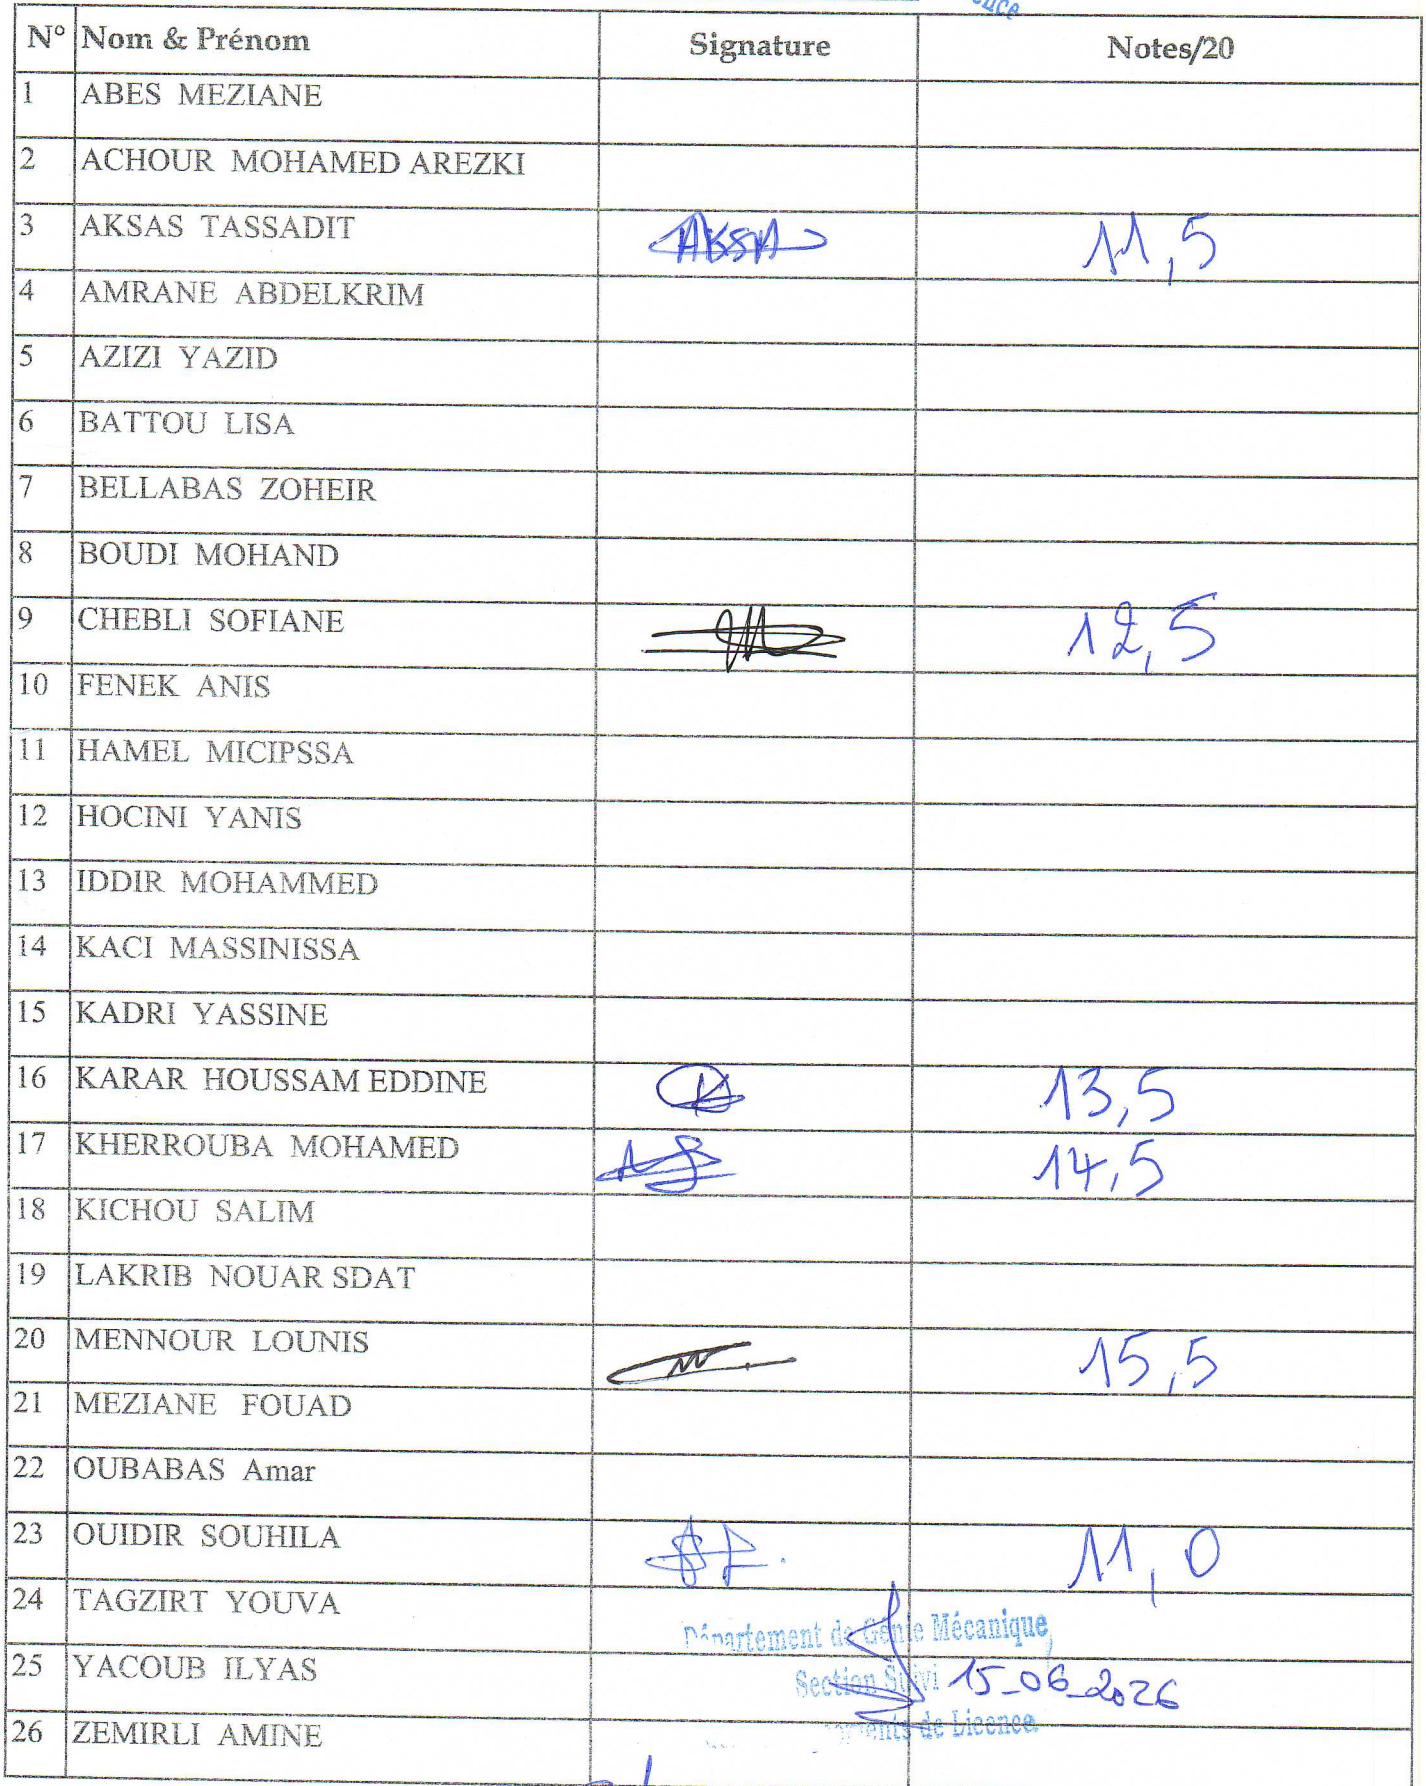 N° Nom & Prénom Signature Notes/20
1 ABES MEZIANE
2 ACHOUR MOHAMED AREZKI
3 AKSAS TASSADIT AKSA 11,5
4 AMRANE ABDELKRIM
5 AZIZI YAZID
6 BATTOU LISA
7 BELLABAS ZOHEIR
8 BOUDI MOHAND
9 CHEBLI SOFIANE 12,5
10 FENEK ANIS
11 HAMEL MICIPSSA
12 HOCINI YANIS
13 IDDIR MOHAMMED
14 KACI MASSINISSA
15 KADRI YASSINE
16 KARAR HOUSSAM EDDINE 13,5
17 KHERROUBA MOHAMED 14,5
18 KICHOU SALIM
19 LAKRIB NOUAR SDAT
20 MENNOUR LOUNIS 15,5
21 MEZIANE FOUAD
22 OUBABAS Amar
23 OUIDIR SOUHILA 11,0
24 TAGZIRT YOUVA
Département de Génie Mécanique
25 YACOUB ILYAS
Section Suivi 15-06-2026
26 ZEMIRLI AMINE
de Licence